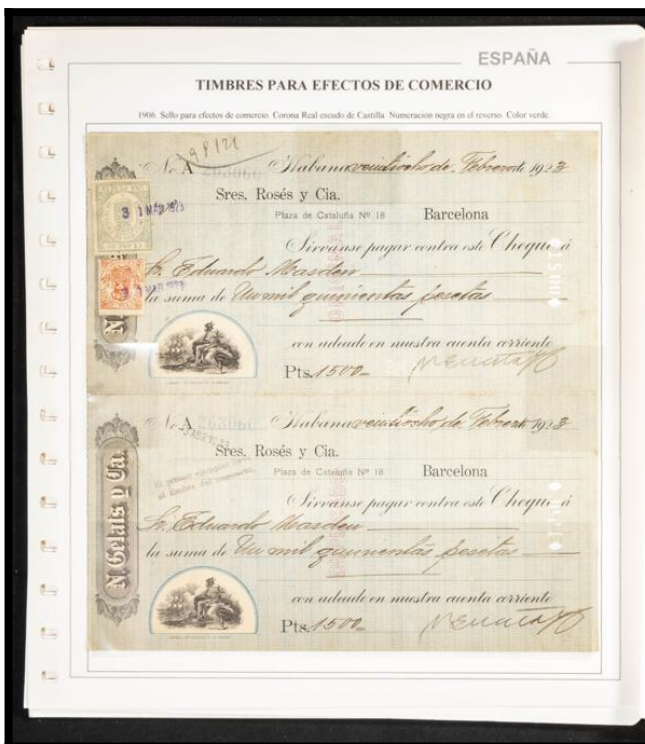 ESPAÑA
TIMBRES PARA EFECTOS DE COMERCIO
1906 Sello para efectos de comercio. Corona Real escudo de Castilla. Numeración negra en el reverso. Color verde.
98121
No. A 263060 Habana veintiocho de Febrero de 1923
Sres. Rosés y Cia.
Plaza de Cataluña Nº 18 Barcelona
Sírvanse pagar contra este Cheque á
Sr. Eduardo Masdeu
la suma de Un mil quinientas pesetas
con adeudo en nuestra cuenta corriente
Pts. 1500=
31 MAR 1923
31 MAR 1923
No. A 263060 Habana veintiocho de Febrero de 1923
Sres. Rosés y Cia.
Plaza de Cataluña Nº 18 Barcelona
Sírvanse pagar contra este Cheque á
Sr. Eduardo Masdeu
la suma de Un mil quinientas pesetas
con adeudo en nuestra cuenta corriente
Pts. 1500=
N. Gelats y Ca.